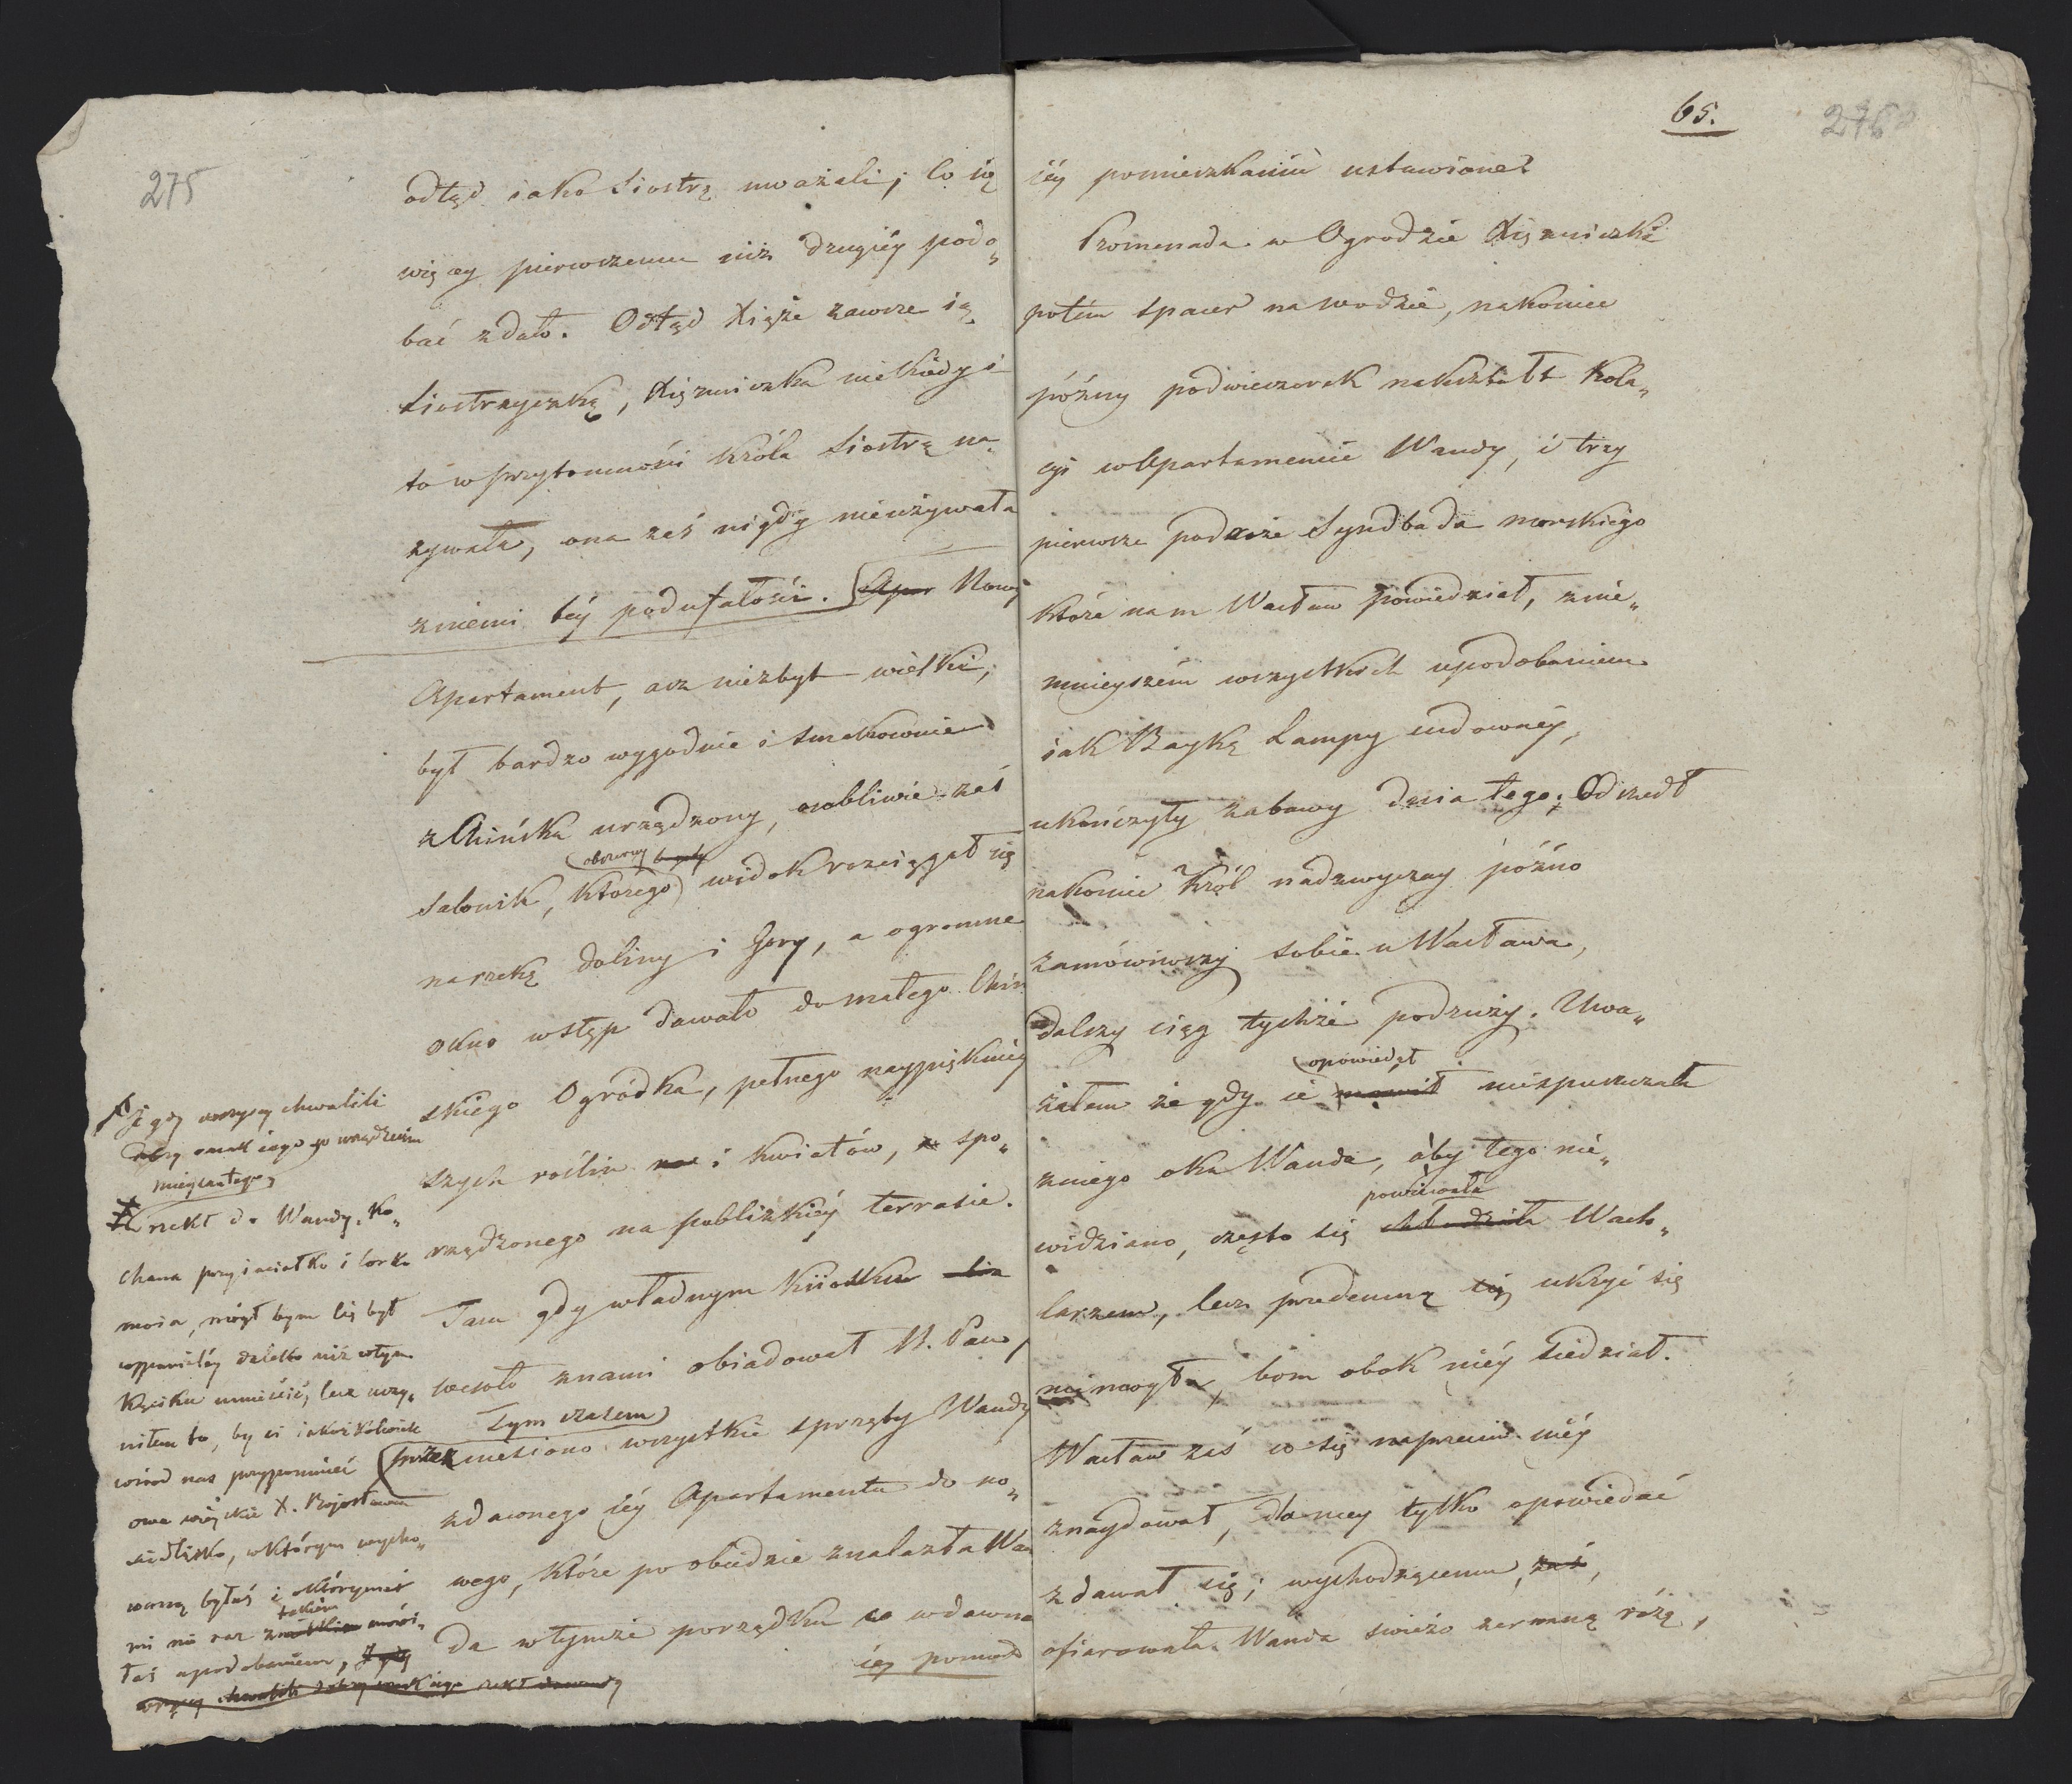 275
odtąd iako Siostrę uważali; Co się
więcey pierwszemu niż drugiéy podo„
bać zdało. Odtąd Xiąże zawsze ią
Siostrzyczką, Xiężniczka niekiedy i
to w przytomności Króla Siostrą na„
zywała, ona zaś nigdy nieużywała
zniemi téy poufałości. Apar Nowy
Apartament, acz niezbyt wielki,
był bardzo wygodnie i smakownie
z Chińska urządzony, osobliwie zaś
obszerny
Salonik, którego widok rozciągał się
na rzekę doliny i Gory, a ogromne
okno wstęp dawało do małego Chiń
skiego Ogródka, pełnego naypiękniey
szych roślin i kwiatów, spo„
rządzonego na pobliskiéy terrasie.
Tam gdy władnym Kiosku
wesoło znami obiadował N. Pan,
Tym czasem
przeniesiono wszystkie sprzęty Wandy
zdawnego iéy Apartamentu do no„
wego, które po obiedzie znalazła Wan
da wtymże porządku co wdawna
iéy pomie
I gdy wszyscy chwalili
dobry smak iego w urządzeniu
mieysca tego,
rzekł do Wandy, Ko„
chana przyiaciołko i Corko
moia, mógł bym Cię był
wspanialéy daleko niż wtym
Kąciku umieścić, lecz uczy„
niłem to, by ci iakożkolwiek
wśród nas przypomnieć
owe wieyskie X. Bojosława
siedlisko, wktórym wycho„
waną byłaś i o którymeś
takiém
mi nie raz mówi„
łaś upodobaniem, I gdy
wszyscy chwalili dobry smak iego rzekł do wandy
65.
276
iéy pomieszkaniu ustawione.
Promenada w Ogrodzie Xiężniczki
potém spacer na wodzie, nakoniec
późny podwieczorek nakształt Kola„
cyi w Apartamencie Wandy, i trzy
pierwsze podroże Syndbada morskiego
które nam Wacław powiedział, znie„
mnieyszém wszystkich upodobaniem
iak Baykę Lampy cudownéy,
ukończyły zabawy dnia tego; Odszedł
nakoniec Król nadzwyczay późno
zamówiwszy sobie u Wacława,
dalszy ciąg tychże podróży. Uwa„
opowiedał
żałem że gdy ie mowił niespuszczała
zniego oka Wanda, aby tego nie„
powiewała
widziano, często się chłodziła Wach„
larzem, lecz przedemną się ukryć się
niemogła, bom obok niéy siedział.
Wacław zaś co się naprzeciw niéy
znaydował, do niey tylko opowiedać
zdawał się; wychodzącemu, zaś,
ofiarowała Wanda swieżo zerwaną różę,